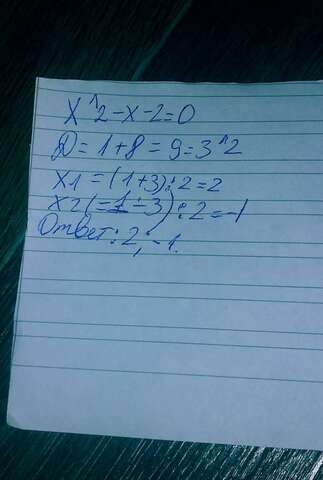 X^2-x-2=0
D=1+8=9=3^2
x1=(1+3):2=2
x2(=1-3):2=-1
Ответ: 2; -1.